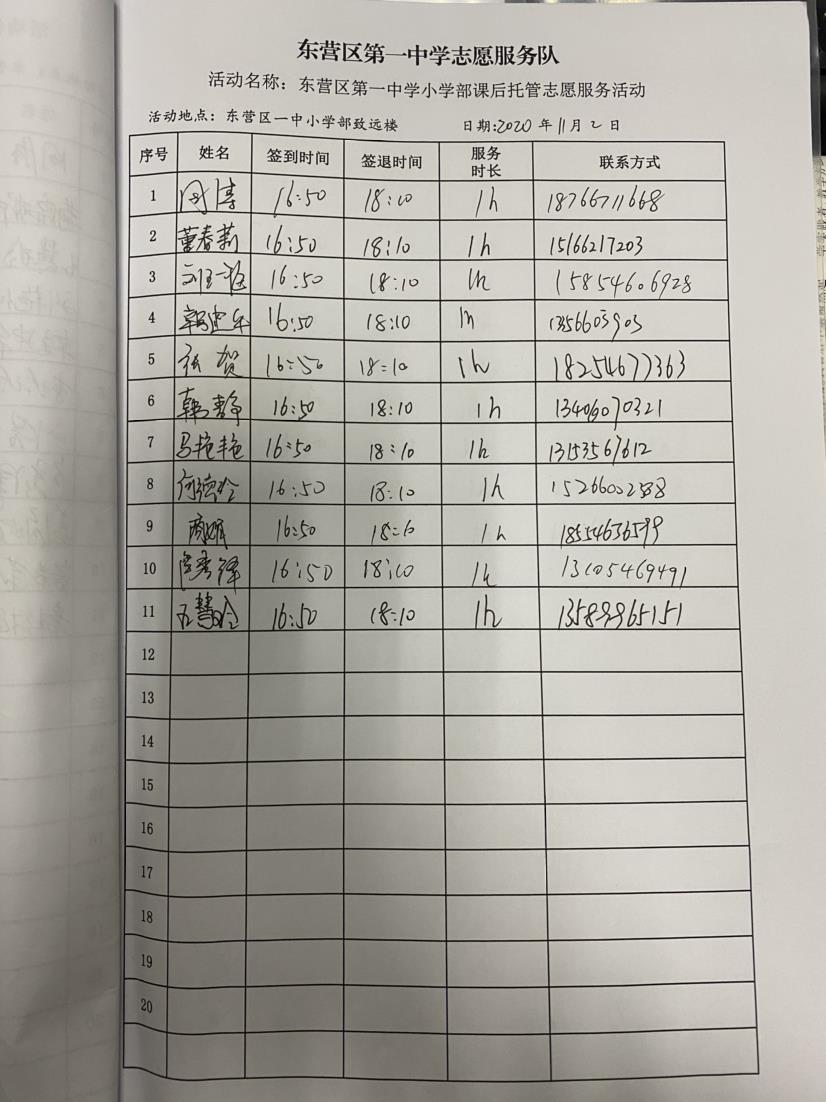 东营区第一中学志愿服务队
活动名称：东营区第一中学小学部课后托管志愿服务活动
活动地点：东营区一中小学部致远楼 日期:2020年11月2日
序号 姓名 签到时间 签退时间 服务时长 联系方式
1 16:50 18:00 1h 18766711668
2 董春莉 16:50 18:10 1h 15166217203
3 16:50 18:10 1h 15854606928
4 16:50 18:10 1h
5 张贺 16:50 18:10 1h 18254677363
6 韩静 16:50 18:10 1h 13406070321
7 马艳艳 16:50 18:10 1h 13153567612
8 何德玲 16:50 18:10 1h 15266002588
9 16:50 18:10 1h 18554636599
10 16:50 18:00 1h 13105469491
11 王慧玲 16:50 18:10 1h 13589965151
12
13
14
15
16
17
18
19
20